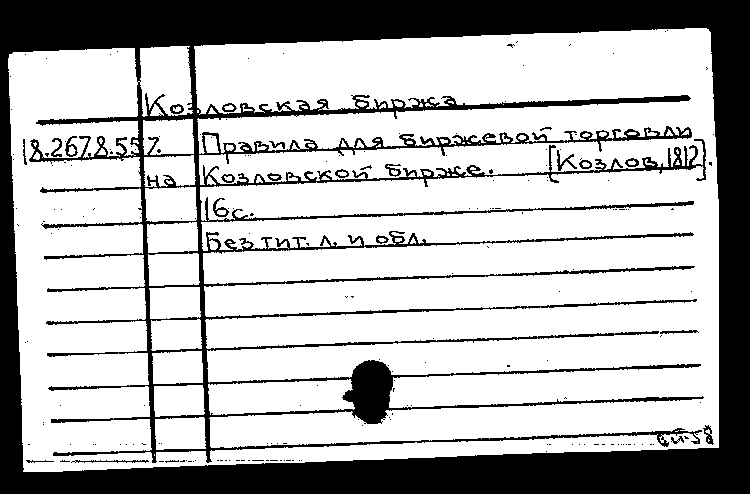 Козловская биржа.
18.267.8.557. Правила для биржевой торговли
на Козловской бирже. [Козлов, 1812].
16с.
Без тит. л. и обл.